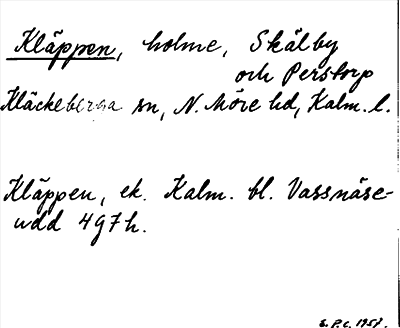 Kläppen, holme, Skälby
och Perstorp
Kläckeberga sn, N. Möre hd, Kalm. l.
Kläppen, ek. Kalm. bl. Vassnäse-
udd 4 g 7 h.
E. P. C. 1957.